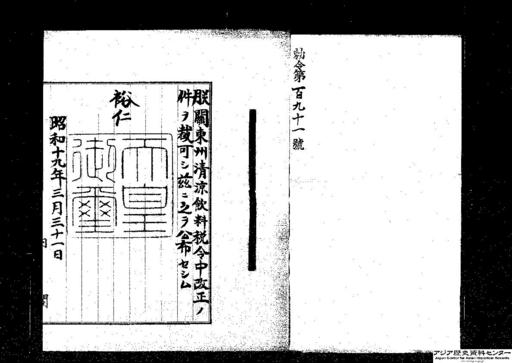 勅令第百九十一號
朕關東州清涼飲料税令中改正ノ
件ヲ裁可シ茲ニ之ヲ公布セシム
裕仁
天皇御璽
昭和十九年三月三十一日
内閣
アジア歴史資料センター
Japan Center for Asian Historical Records